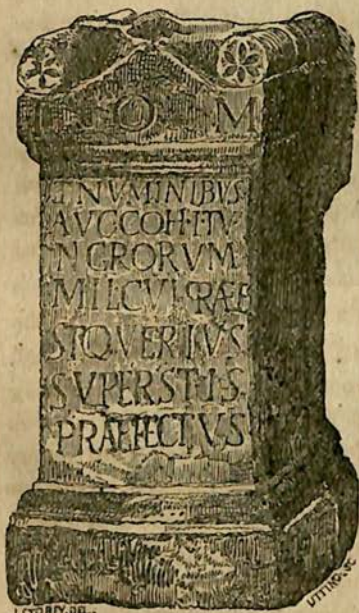 I O M
ET NVMINIBVS
AVG COH I TV
NGRORVM
MIL CVI PRÆE
ST Q VERIVS
SVPERSTIS
PRAEFECTVS
J. STOREY. DEL.
UTTING. SC